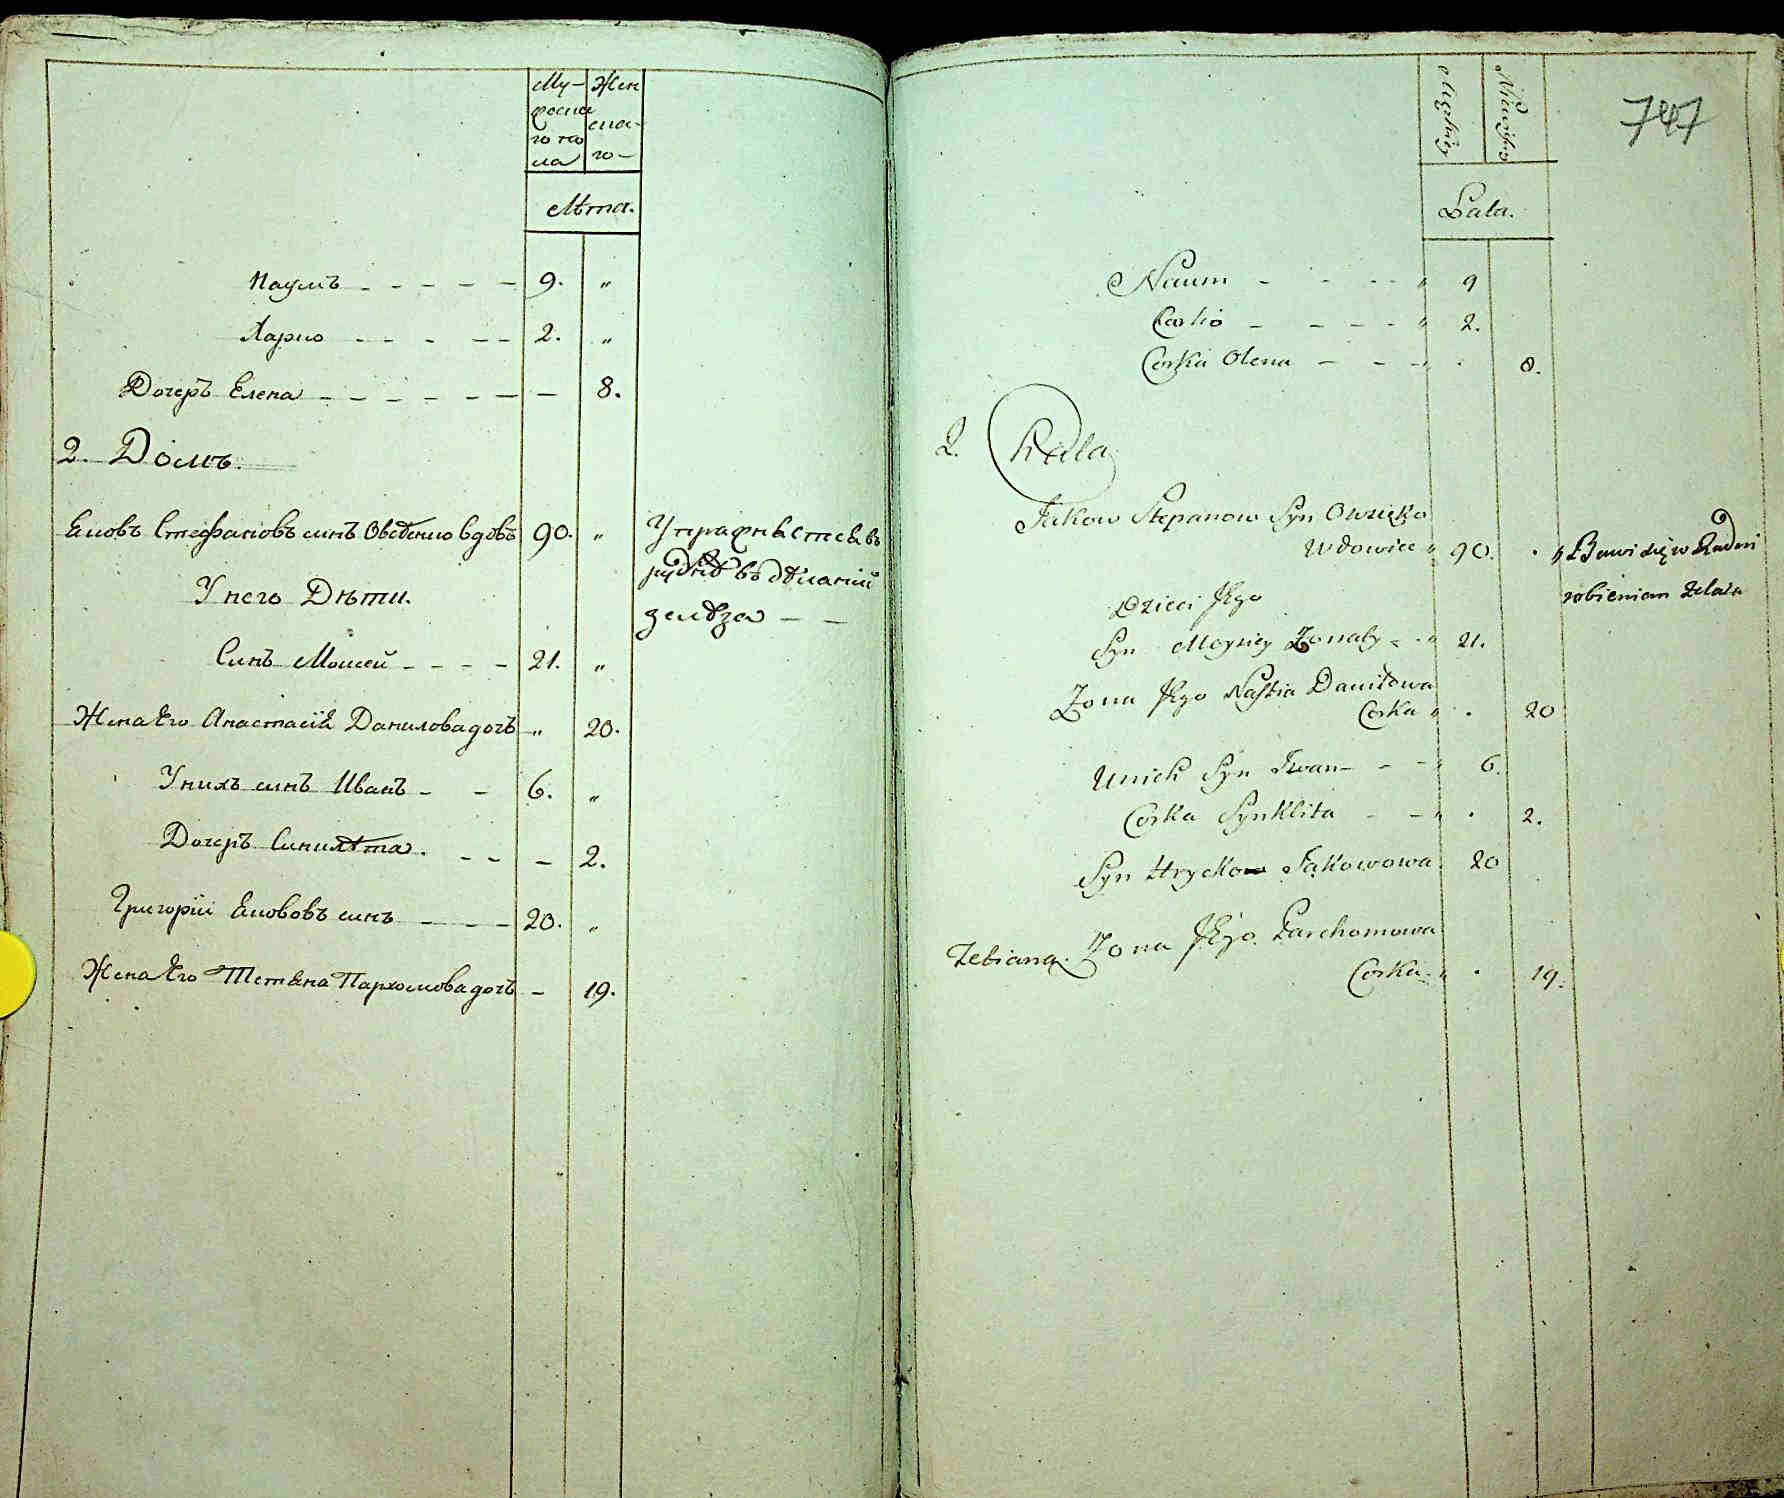 Му-
жеска
го по
ла
Жен
ска-
го-
Лѣта.
Наумъ - - - - - 9. "
Карпо - - - - - 2. "
Дочеръ Елена - - - - - - - 8.
2. Домъ.
Яковъ Стефановъ синъ Овсѣенко вдовъ 90. "
Упражняется въ
руднѣ въ дѣланіи
зелѣза - -
У него Дѣти.
Синъ Моисей - - - - 21. "
Жена Его Анастасія Данилова дочъ " 20.
У нихъ синъ Иванъ - - 6. "
Дочеръ Синклѣта. - - - 2.
Григорій Якововъ синъ - - - 20. "
Жена Его Тетяна Пархомова дочъ - 19.
747
Męzkiey
Lata.
Naum - - - - " 9
- - - - " 2.
Corka Olena - - - " . 8.
2. Chata
Jakow Stepanow Syn
Wdowiec " 90. .
Bawi się w Rudni
robieniem Zelaza
Dzieci Jego
Syn Moysiey Zonaty - - " 21.
Zona Jego Nastia Daniłowa
Corka " . 20
Unich Syn Iwan - - - " 6.
Corka Synklita - - " . 2.
Syn Hrycko Jakowowa 20
Tetiana. Zona Jego Parchomowa
Corka - " . 19.